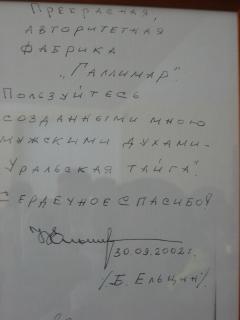 Прекрасная,
авторитетная
фабрика
„Галлимар".
Пользуйтесь
созданными мною
мужскими духами-
„Уральская тайга".
Сердечное спасибо!
30.03.2002г.
/Б. Ельцин/